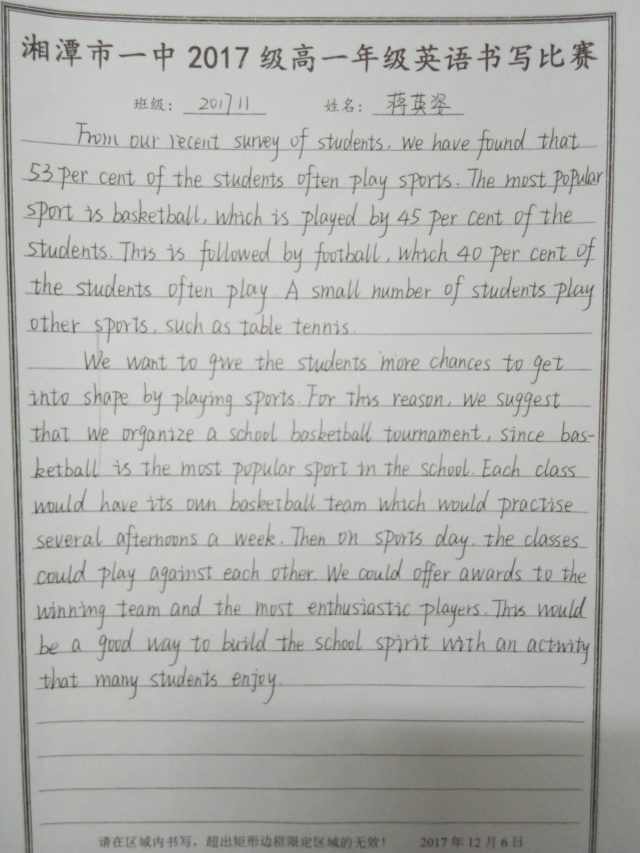 湘潭市一中 2017 级高一年级英语书写比赛
班级: 201711 姓名: 蒋英姿
From our recent survey of students, we have found that
53 per cent of the students often play sports. The most popular
sport is basketball, which is played by 45 per cent of the
students. This is followed by football, which 40 per cent of
the students often play. A small number of students play
other sports, such as table tennis.
We want to give the students more chances to get
into shape by playing sports. For this reason, we suggest
that we organize a school basketball tournament, since bas-
ketball is the most popular sport in the school. Each class
would have its own basketball team which would practise
several afternoons a week. Then on sports day, the classes
could play against each other. We could offer awards to the
winning team and the most enthusiastic players. This would
be a good way to build the school spirit with an activity
that many students enjoy.
请在区域内书写，超出矩形边框限定区域的无效! 2017 年 12 月 6 日